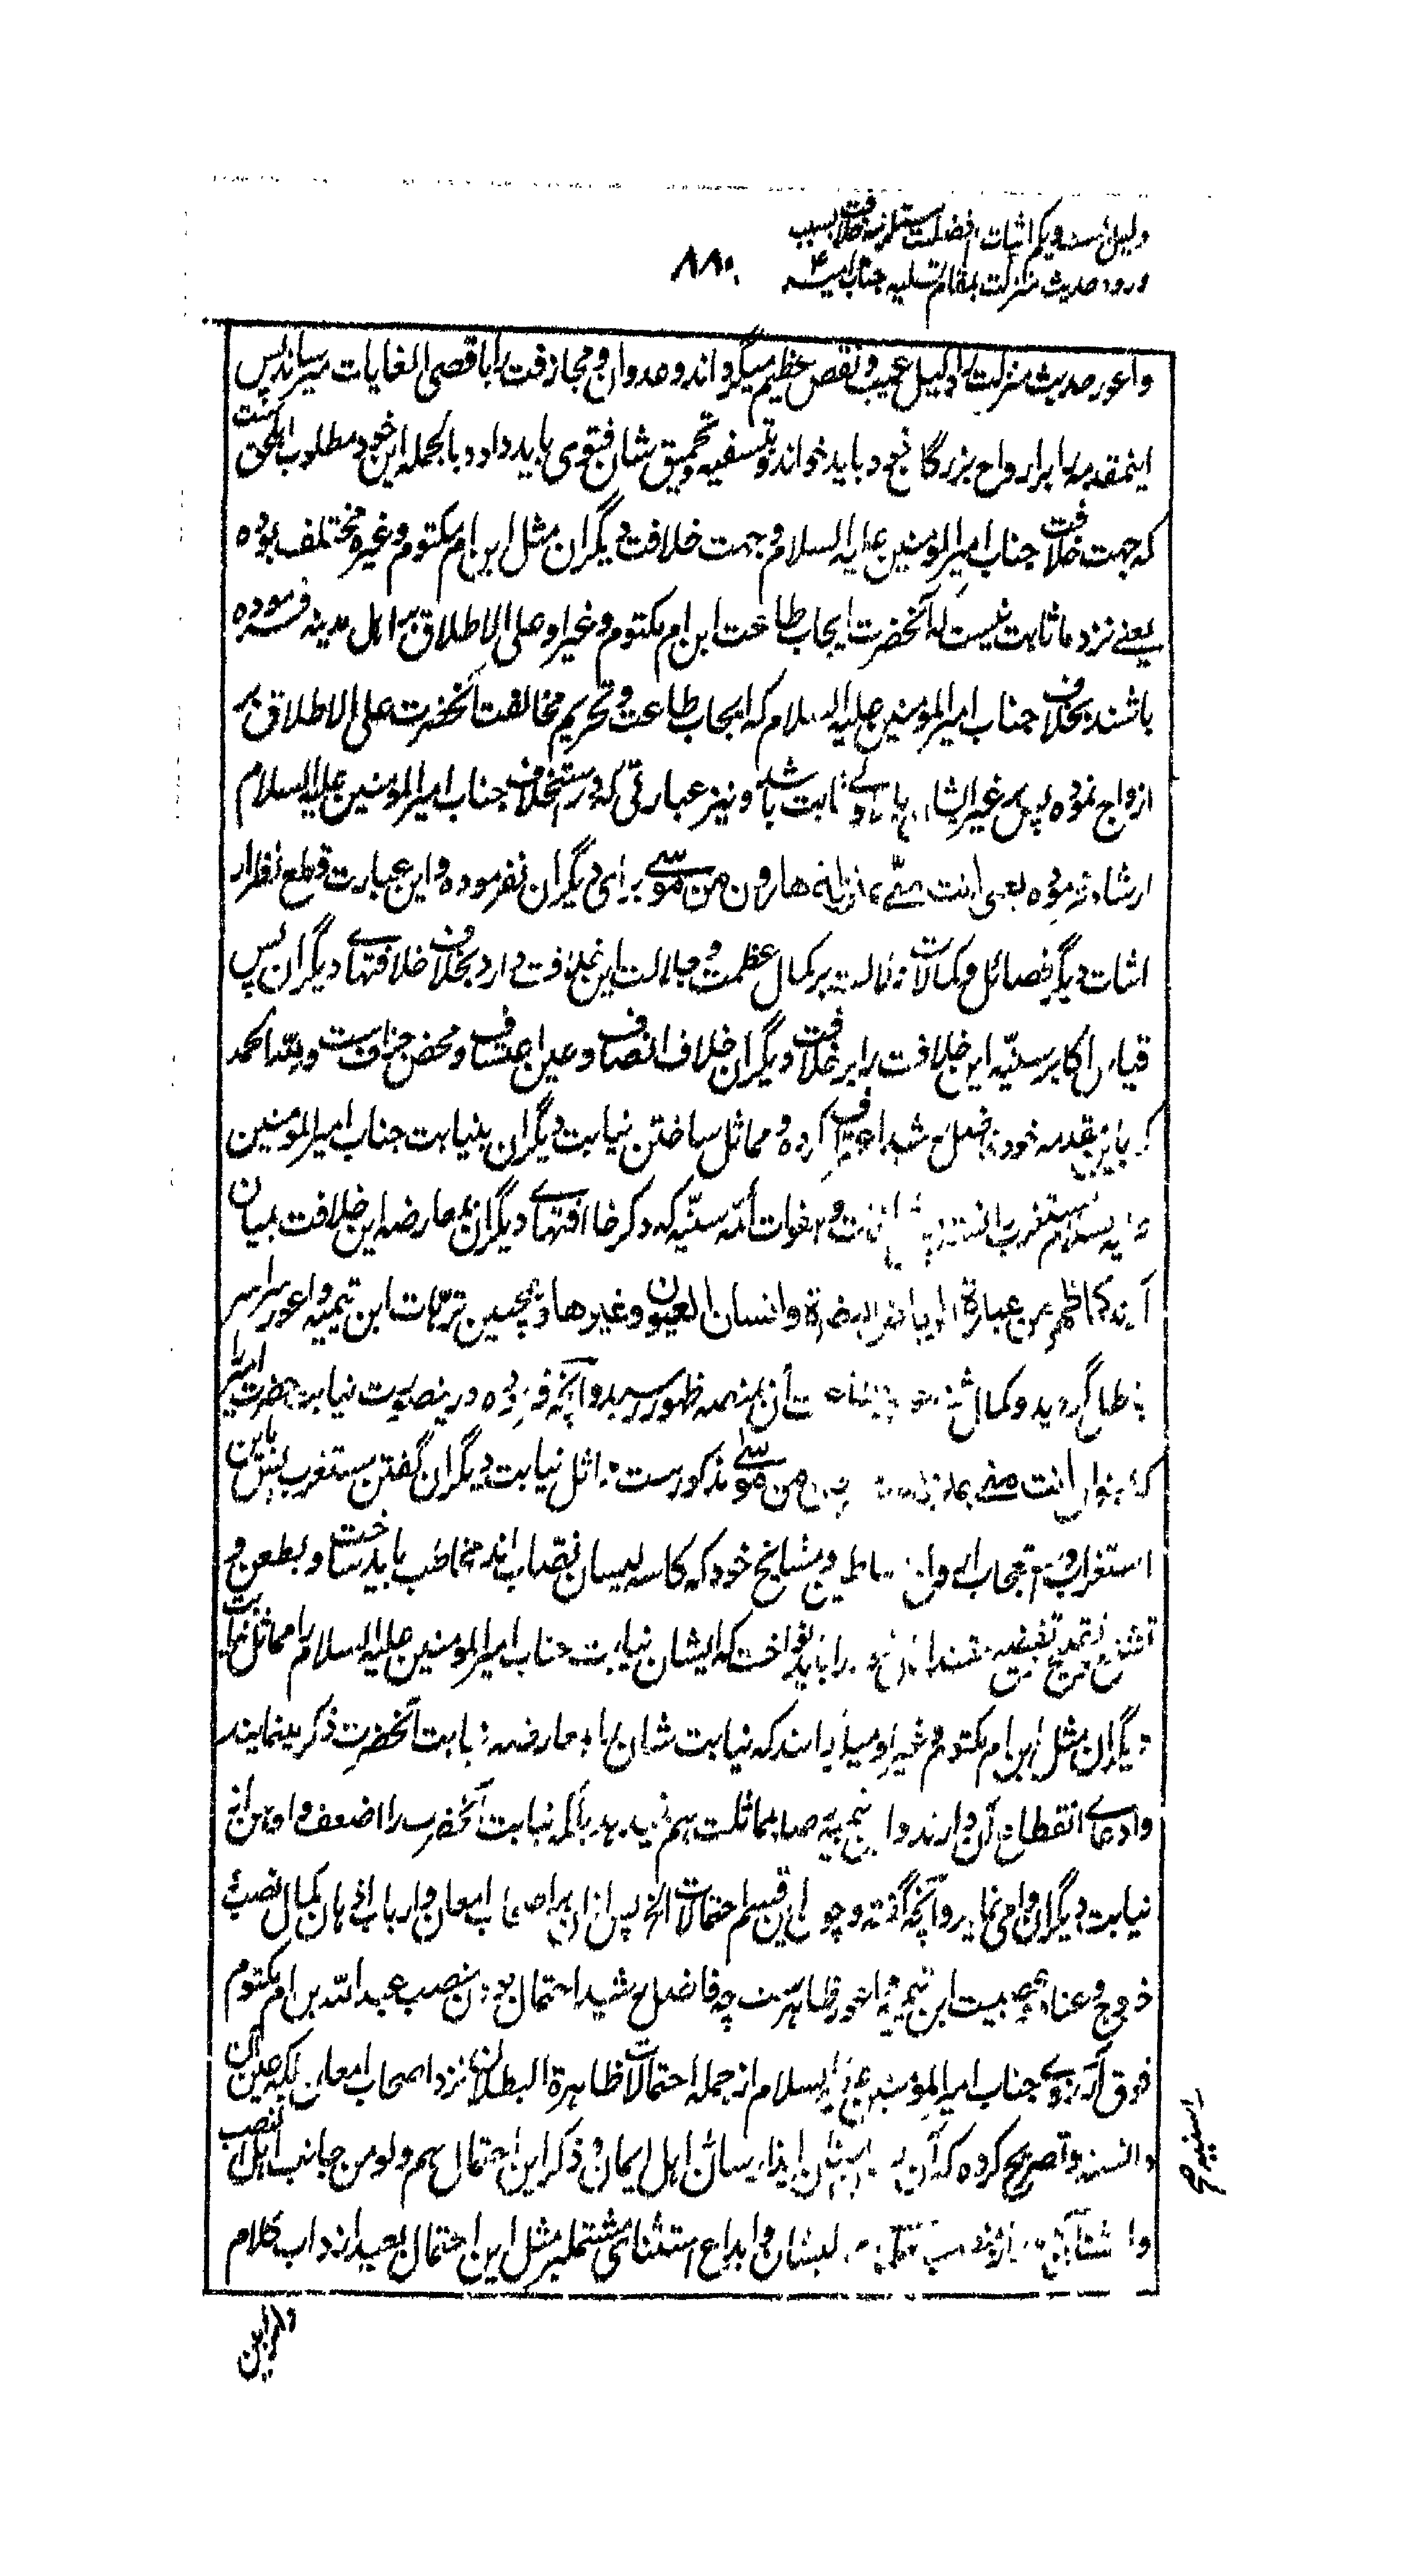 دلیل بست و یکم اثبات افضلیت مستلزمه خلافت بسبب
ورود حدیث منزلت بمقام تسلیه جناب امیر ع
۸۸۰
واعور حدیث منزلت را دلیل عیب و نقص عظیم میگرداند و عدوان و مجازفت را باقصی الغایات میرساند پس
اینمقدمه را بر ارواح بزرگان خود باید خواند و بتسفیه و تحمیق شان فتوی باید داد و بالجمله این خود مطلوب اهلحق ست
که جهت خلافت جناب امیرالمومنین علیه السلام و جهت خلافت دیگران مثل ابن ام مکتوم و غیره مختلف بوده
یعنی نزد ما ثابت نیست که آنحضرت ایجاب طاعت ابن ام مکتوم و غیر او علی الاطلاق بر اهل مدینه فرموده
باشند بخلاف جناب امیرالمومنین علیه السلام که ایجاب طاعت و تحریم مخالفت آنحضرت علی الاطلاق بر
ازواج نموده پس بر غیر ایشان باولی ثابت باشد و نیز عبارتی که در استخلاف جناب امیرالمومنین علیه السلام
ارشاد فرموده یعنی انت منی بمنزلة هارون من موسی برای دیگران نفرموده و این عبارت قطع نظر از
اثبات دیگر فضائل و کمالات دلالت بر کمال عظمت و جلالت این خلافت دارد بخلاف خلافتهای دیگران پس
قیاس اکابر سنیه این خلافت را بر خلافت دیگران خلاف انصاف و عین اعتساف و محض جزاف ست و لله الحمد
که باین مقدمه خود فاضل رشید اعتراف کرده و مماثل ساختن نیابت دیگران بنیابت جناب امیرالمومنین
علیه السلام مستغرب دانسته پس و هفوات ائمه سنیه که ذکر خلافتهای دیگران بمعارضه این خلافت بمیان
آرند کما ظهر من عبارة الریاض النضرة و انسان العیون و غیرها و همچنین ترهات ابن تیمیه و اعور سراسر
خطا گردید و کمال شان بمنصه ظهور رسید و آنچه فرموده درینصورت نیابت حضرت امیر را
که بقول انت منی بمنزلة هرون من موسی مذکورست مماثل نیابت دیگران گفتن مستغرب پس باین
استغراب و استعجاب اساطین و مشایخ خود که کاسه لیسان نصاب اند مخاطب باید ساخت و بطعن و
تشنیع و تقبیح را باید نواخت که ایشان نیابت جناب امیرالمومنین علیه السلام را مماثل نیابت
دیگران مثل ابن ام مکتوم و غیر او میدانند که نیابت شان را بمعارضه نیابت آنحضرت ذکر مینمایند
و ادعای انقطاع آن دارند و ابن تیمیه بمماثلت هم نمیدهد بلکه نیابت آنحضرت را اضعف و اوهن از
نیابت دیگران وامی نماید و آنچه گفته و چون این قسم احتمالات الخ پس ازان بر اصحاب امعان و ارباب اذهان کمال نصب و
خروج و عناد و عصبیت ابن تیمیه و اعور ظاهرست چه فاضل رشید احتمال بودن منصب عبدالله بن ام مکتوم
فوق آرزوی جناب امیرالمومنین علیه السلام از جمله احتمالات ظاهرة البطلان نزد اصحاب امعان بلکه عین آن
دانسته و تصریح کرده که آن ایذا رسان اهل ایمان و ذکر این احتمال هم ولو من جانب اهل النصب
و ابداع استثنای مشتمل بر مثل این احتمال بعید از داب کلام